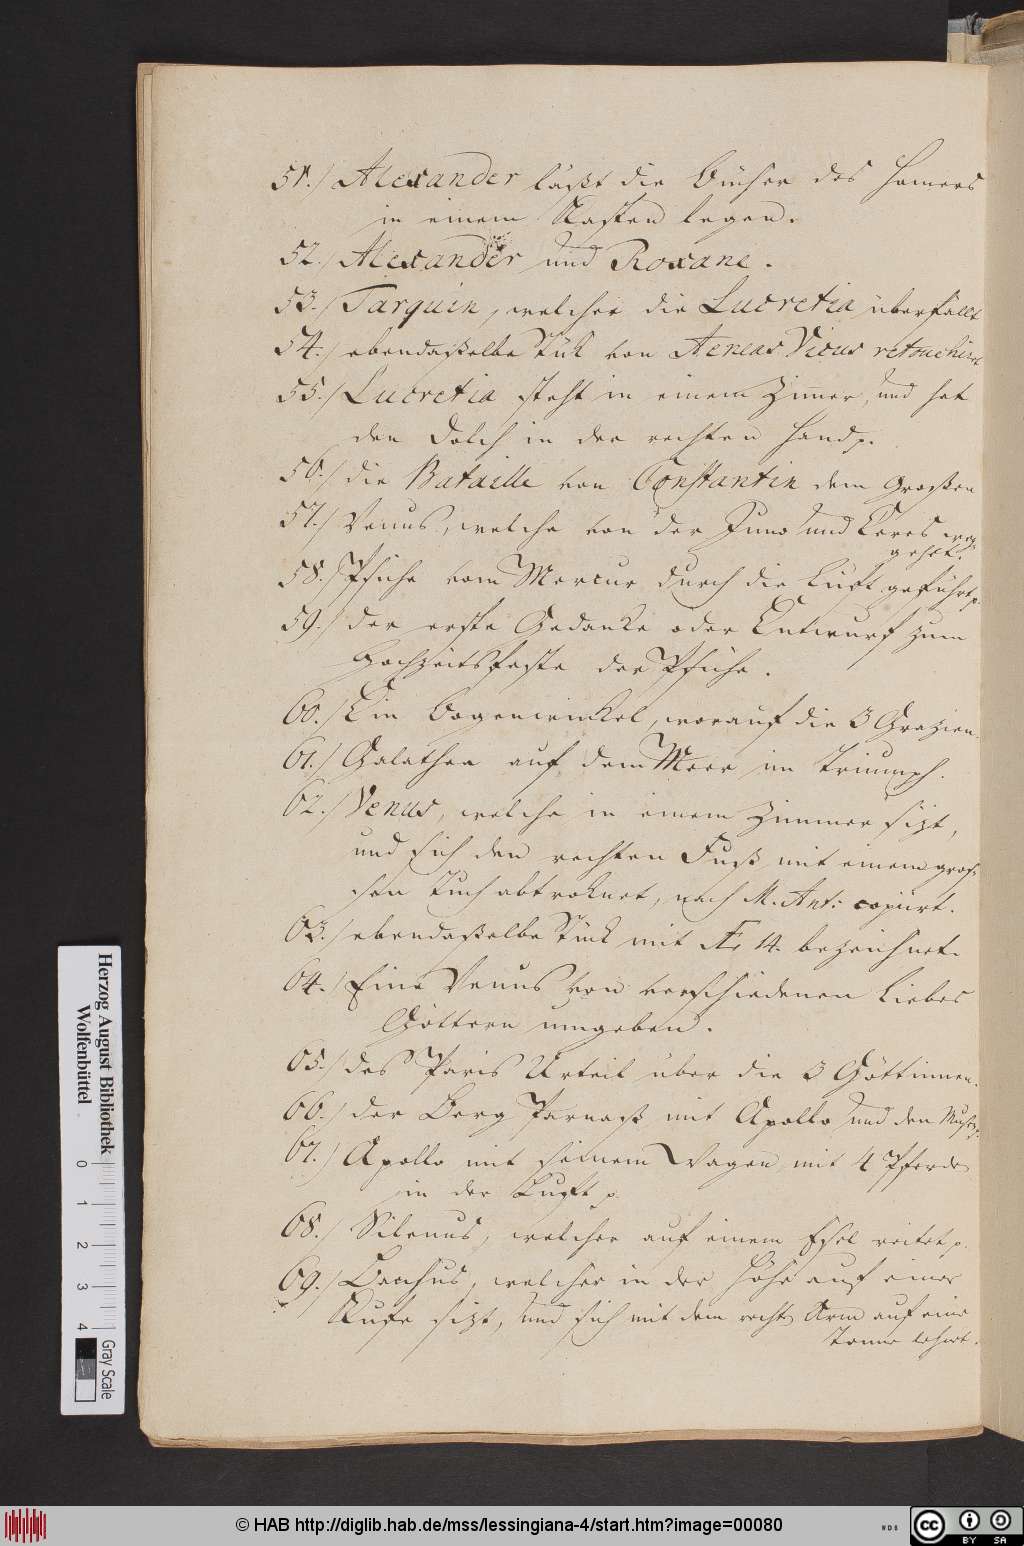 51./ Alexander läßt die Bücher des Homers
in einem Kasten legen.
52./ Alexander und Roxane.
53./ Tarquin, welcher die Lucretia überfällt
54./ ebendaßelbe Stük von Aeneas Vicus retouchirt
55./ Lucretia steht in einem Zimer, und hat
den Dolch in der rechten Hand p.
56./ die Bataille von Constantin dem Großen
57./ Venus, welche von der Juno und Ceres weg
gehet.
58./ Psiche vom Mercur durch die Luft geführt p.
59./ der erste Gedanke oder Entwurf zum
Hochzeitsfeste der Psiche.
60./ Ein Bogenwinkel, worauf die 3 Grazien.
61./ Galathea auf dem Meer im Triumph.
62./ Venus, welche in einem Zimmer sizt,
und sich den rechten Fuß mit einem gros-
sen Tuch abtroknet, nach M. Ant: copiirt.
63./ ebendaßelbe Stük mit 14. bezeichnet.
64./ Eine Venus von verschiedenen Liebes
Göttern umgeben.
65./ des Paris Urteil über die 3 Göttinnen.
66./ der Berg Parnaß mit Apollo und den Musen
67./ Apollo mit seinem Wagen mit 4 Pferde
in der Luft p.
68./ Silenus, welcher auf einem Esel reitet p.
69./ Bachus, welcher in der Höhe auf einer
Kufe sizt, und sich mit dem recht Arm auf eine
Tonne lehnet.
Herzog August Bibliothek
Wolfenbüttel
0 1 2 3 4
Gray Scale
© HAB http://diglib.hab.de/mss/lessingiana-4/start.htm?image=00080
WDB
cc BY SA